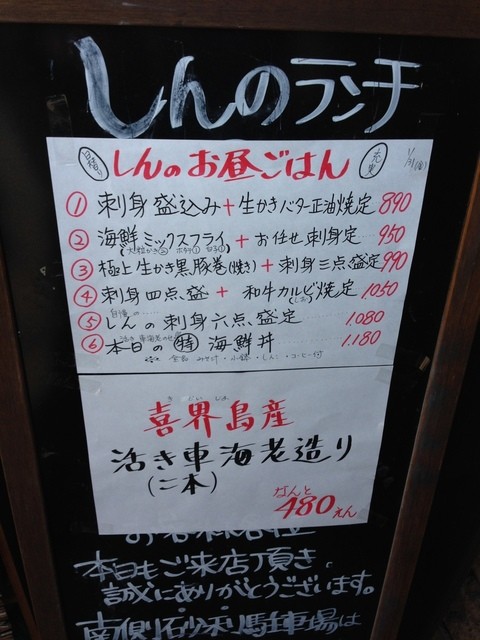 しんのランチ
日替り しんのお昼ごはん 充実 1/31(金)
① 刺身盛込み+生かきバター正油焼定 890
② 海鮮ミックスフライ+お任せ刺身定…950
(大粒かき② ホタテ① 白子①)
③ 極上生かき黒豚巻(焼き)+刺身三点盛定 990
④ 刺身四点盛+和牛カルビ焼定 1050
自慢の…
⑤ しんの刺身六点盛定 1080
活き車海老のせ
⑥ 本日の㊕海鮮丼 1.180
全品 みそ汁・小鉢・しんこ・コーヒー付
き かい じま
喜界島産
活き車海老造り
(二本)
なんと
480えん
本日もご来店頂き
誠にありがとうございます。
南側砂利駐車場は